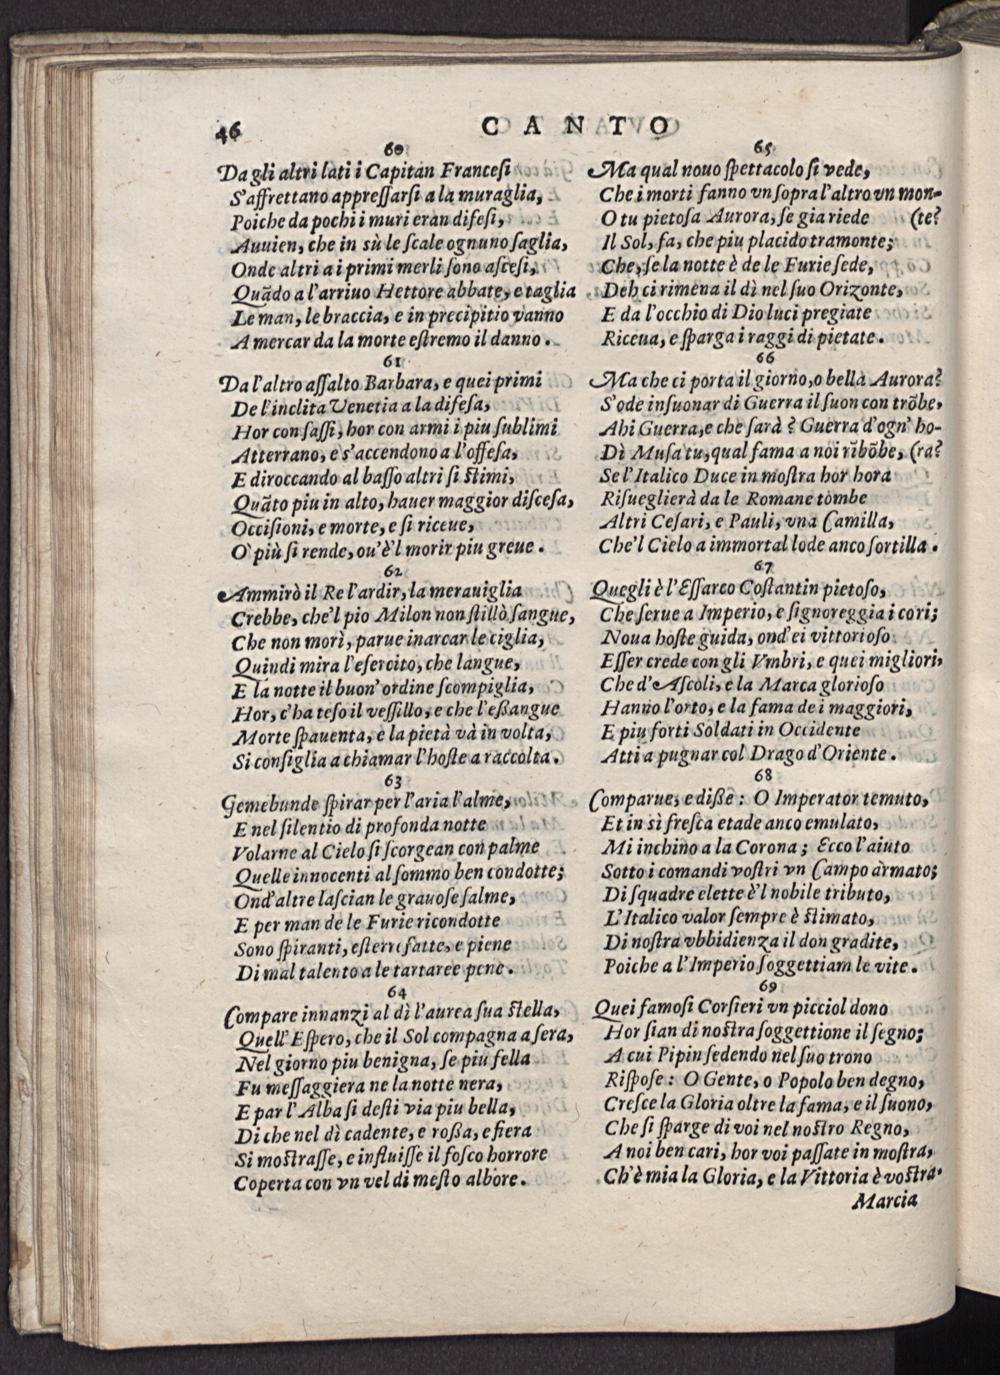 46
CANTO
60
Da gli altri lati i Capitan Francesi
S'affrettano appreſſarſi a la muraglia,
Poiche da pochi i muri eran difeſi,
Auuien, che in sù le ſcale ognuno ſaglia,
Onde altri a i primi merli ſono aſceſi,
Quãdo a l'arriuo Hettore abbate, e taglia
Le man, le braccia, e in precipitio vanno
A mercar da la morte eſtremo il danno.
61
Da l'altro aſſalto Barbara, e quei primi
De l'inclita Venetia a la difeſa,
Hor con ſaſſi, hor con armi i piu ſublimi
Atterrano, e s'accendono a l'offeſa,
E diroccando al baſſo altri ſi ſtimi,
Quãto piu in alto, hauer maggior diſceſa,
Occiſioni, e morte, e ſi riceue,
O più ſi rende, ou'è'l morir piu greue.
62
Ammirò il Re l'ardir, la merauiglia
Crebbe, che'l pio Milon non ſtillò ſangue,
Che non morì, parue inarcar le ciglia,
Quindi mira l'eſercito, che langue,
E la notte il buon' ordine ſcompiglia,
Hor, c'ha teſo il veſſillo, e che l'eßangue
Morte ſpauenta, e la pietà và in volta,
Si conſiglia a chiamar l'hoſte a raccolta.
63
Gemebunde ſpirar per l'aria l'alme,
E nel ſilentio di profonda notte
Volarne al Cielo ſi ſcorgean con palme
Quelle innocenti al ſommo ben condotte;
Ond'altre laſcian le grauoſe ſalme,
E per man de le Furie ricondotte
Sono ſpiranti, eſterrefatte, e piene
Di mal talento a le tartaree pene.
64
Compare innanzi al dì l'aurea ſua ſtella,
Quell' Eſpero, che il Sol compagna a ſera,
Nel giorno piu benigna, ſe piu fella
Fu meſſaggiera ne la notte nera,
E par l'Alba ſi deſti via piu bella,
Di che nel dì cadente, e roßa, e fiera
Si moſtraſſe, e influiſſe il foſco horrore
Coperta con vn vel di meſto albore.
65
Ma qual nouo ſpettacolo ſi vede,
Che i morti fanno vn ſopra l'altro vn mon-
O tu pietoſa Aurora, ſe gia riede (te?
Il Sol, fa, che piu placido tramonte;
Che, ſe la notte è de le Furie ſede,
Deh ci rimena il dì nel ſuo Orizonte,
E da l'occhio di Dio luci pregiate
Riceua, e ſparga i raggi di pietate.
66
Ma che ci porta il giorno, o bella Aurora?
S'ode inſuonar di Guerra il ſuon con trõbe,
Ahi Guerra, e che ſarà? Guerra d'ogn' ho-
Dì Muſa tu, qual fama a noi rĩbõbe, (ra?
Se l'Italico Duce in moſtra hor hora
Riſueglierà da le Romane tombe
Altri Ceſari, e Pauli, vna Camilla,
Che'l Cielo a immortal lode anco ſortilla.
67
Quegli è l'Eſſarco Coſtantin pietoſo,
Che ſerue a Imperio, e ſignoreggia i cori;
Noua hoſte guida, ond'ei vittorioſo
Eſſer crede con gli Vmbri, e quei migliori,
Che d'Aſcoli, e la Marca glorioſo
Hanno l'orto, e la fama de i maggiori,
E piu forti Soldati in Occidente
Atti a pugnar col Drago d'Oriente.
68
Comparue, e diße: O Imperator temuto,
Et in sì freſca etade anco emulato,
Mi inchino a la Corona; Ecco l'aiuto
Sotto i comandi voſtri vn Campo armato;
Di ſquadre elette è'l nobile tributo,
L'Italico valor ſempre è ſtimato,
Di noſtra vbbidienza il don gradite,
Poiche a l'Imperio ſoggettiam le vite.
69
Quei famoſi Corſieri vn picciol dono
Hor ſian di noſtra ſoggettione il ſegno;
A cui Pipin ſedendo nel ſuo trono
Riſpoſe: O Gente, o Popolo ben degno,
Creſce la Gloria oltre la fama, e il ſuono,
Che ſi ſparge di voi nel noſtro Regno,
A noi ben cari, hor voi paſſate in moſtra,
Ch'è mia la Gloria, e la Vittoria è voſtra.
Marcia